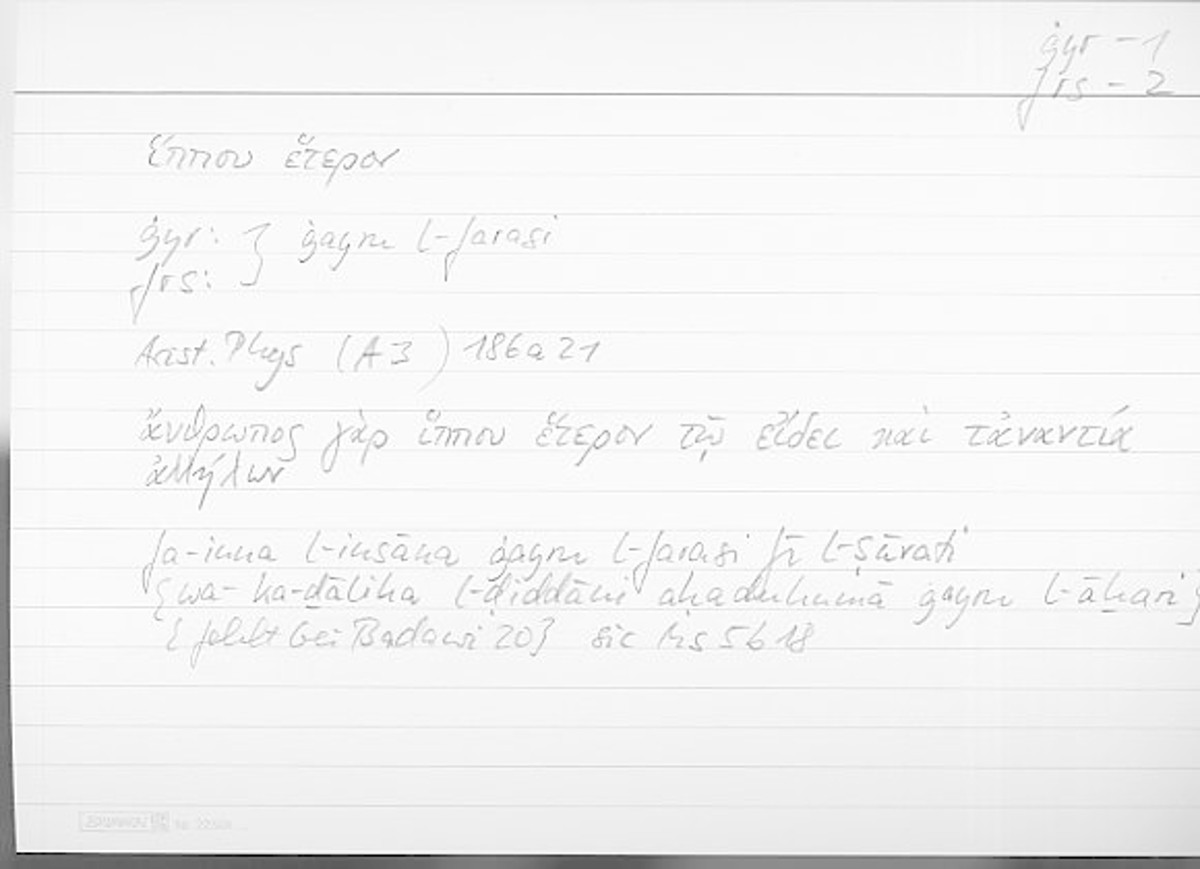 ġyr – 1
frs – 2
ἵππου ἕτερον
ġyr: } ġayru l-farasi
frs:
Arist. Phys (A3) 186a21
ἄνθρωπος γὰρ ἵππου ἕτερον τῷ εἴδει καὶ τἀναντία
ἀλλήλων
fa-inna l-insāna ġayru l-farasi fī l-ṣūrati
{wa-ka-ḏālika l-ḍiddāni aḥaduhumā ġayru l-āḫari}
{fehlt bei Badawi 20} sic Ms 5b18